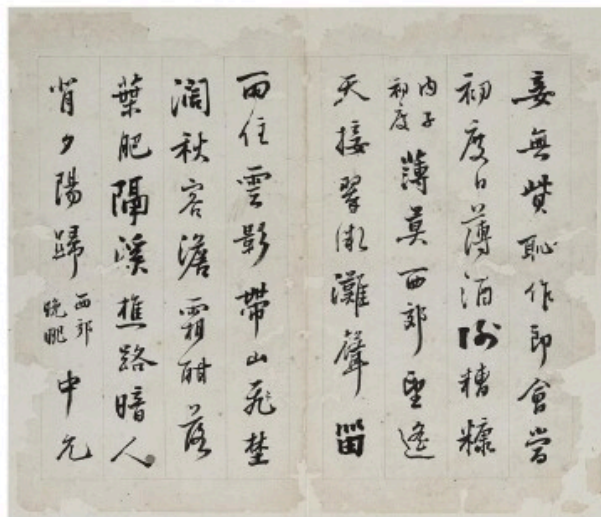 妾無貲恥作郎會當
初度日薄酒糟糠
内子
初度
薄莫西郊望遙
天接翠微灘聲畱
雨住雲影帶山飛埜
濶秋容澹霜酣落
葉肥隔溪樵路暗人
背夕陽歸
西郊
晚眺
中元